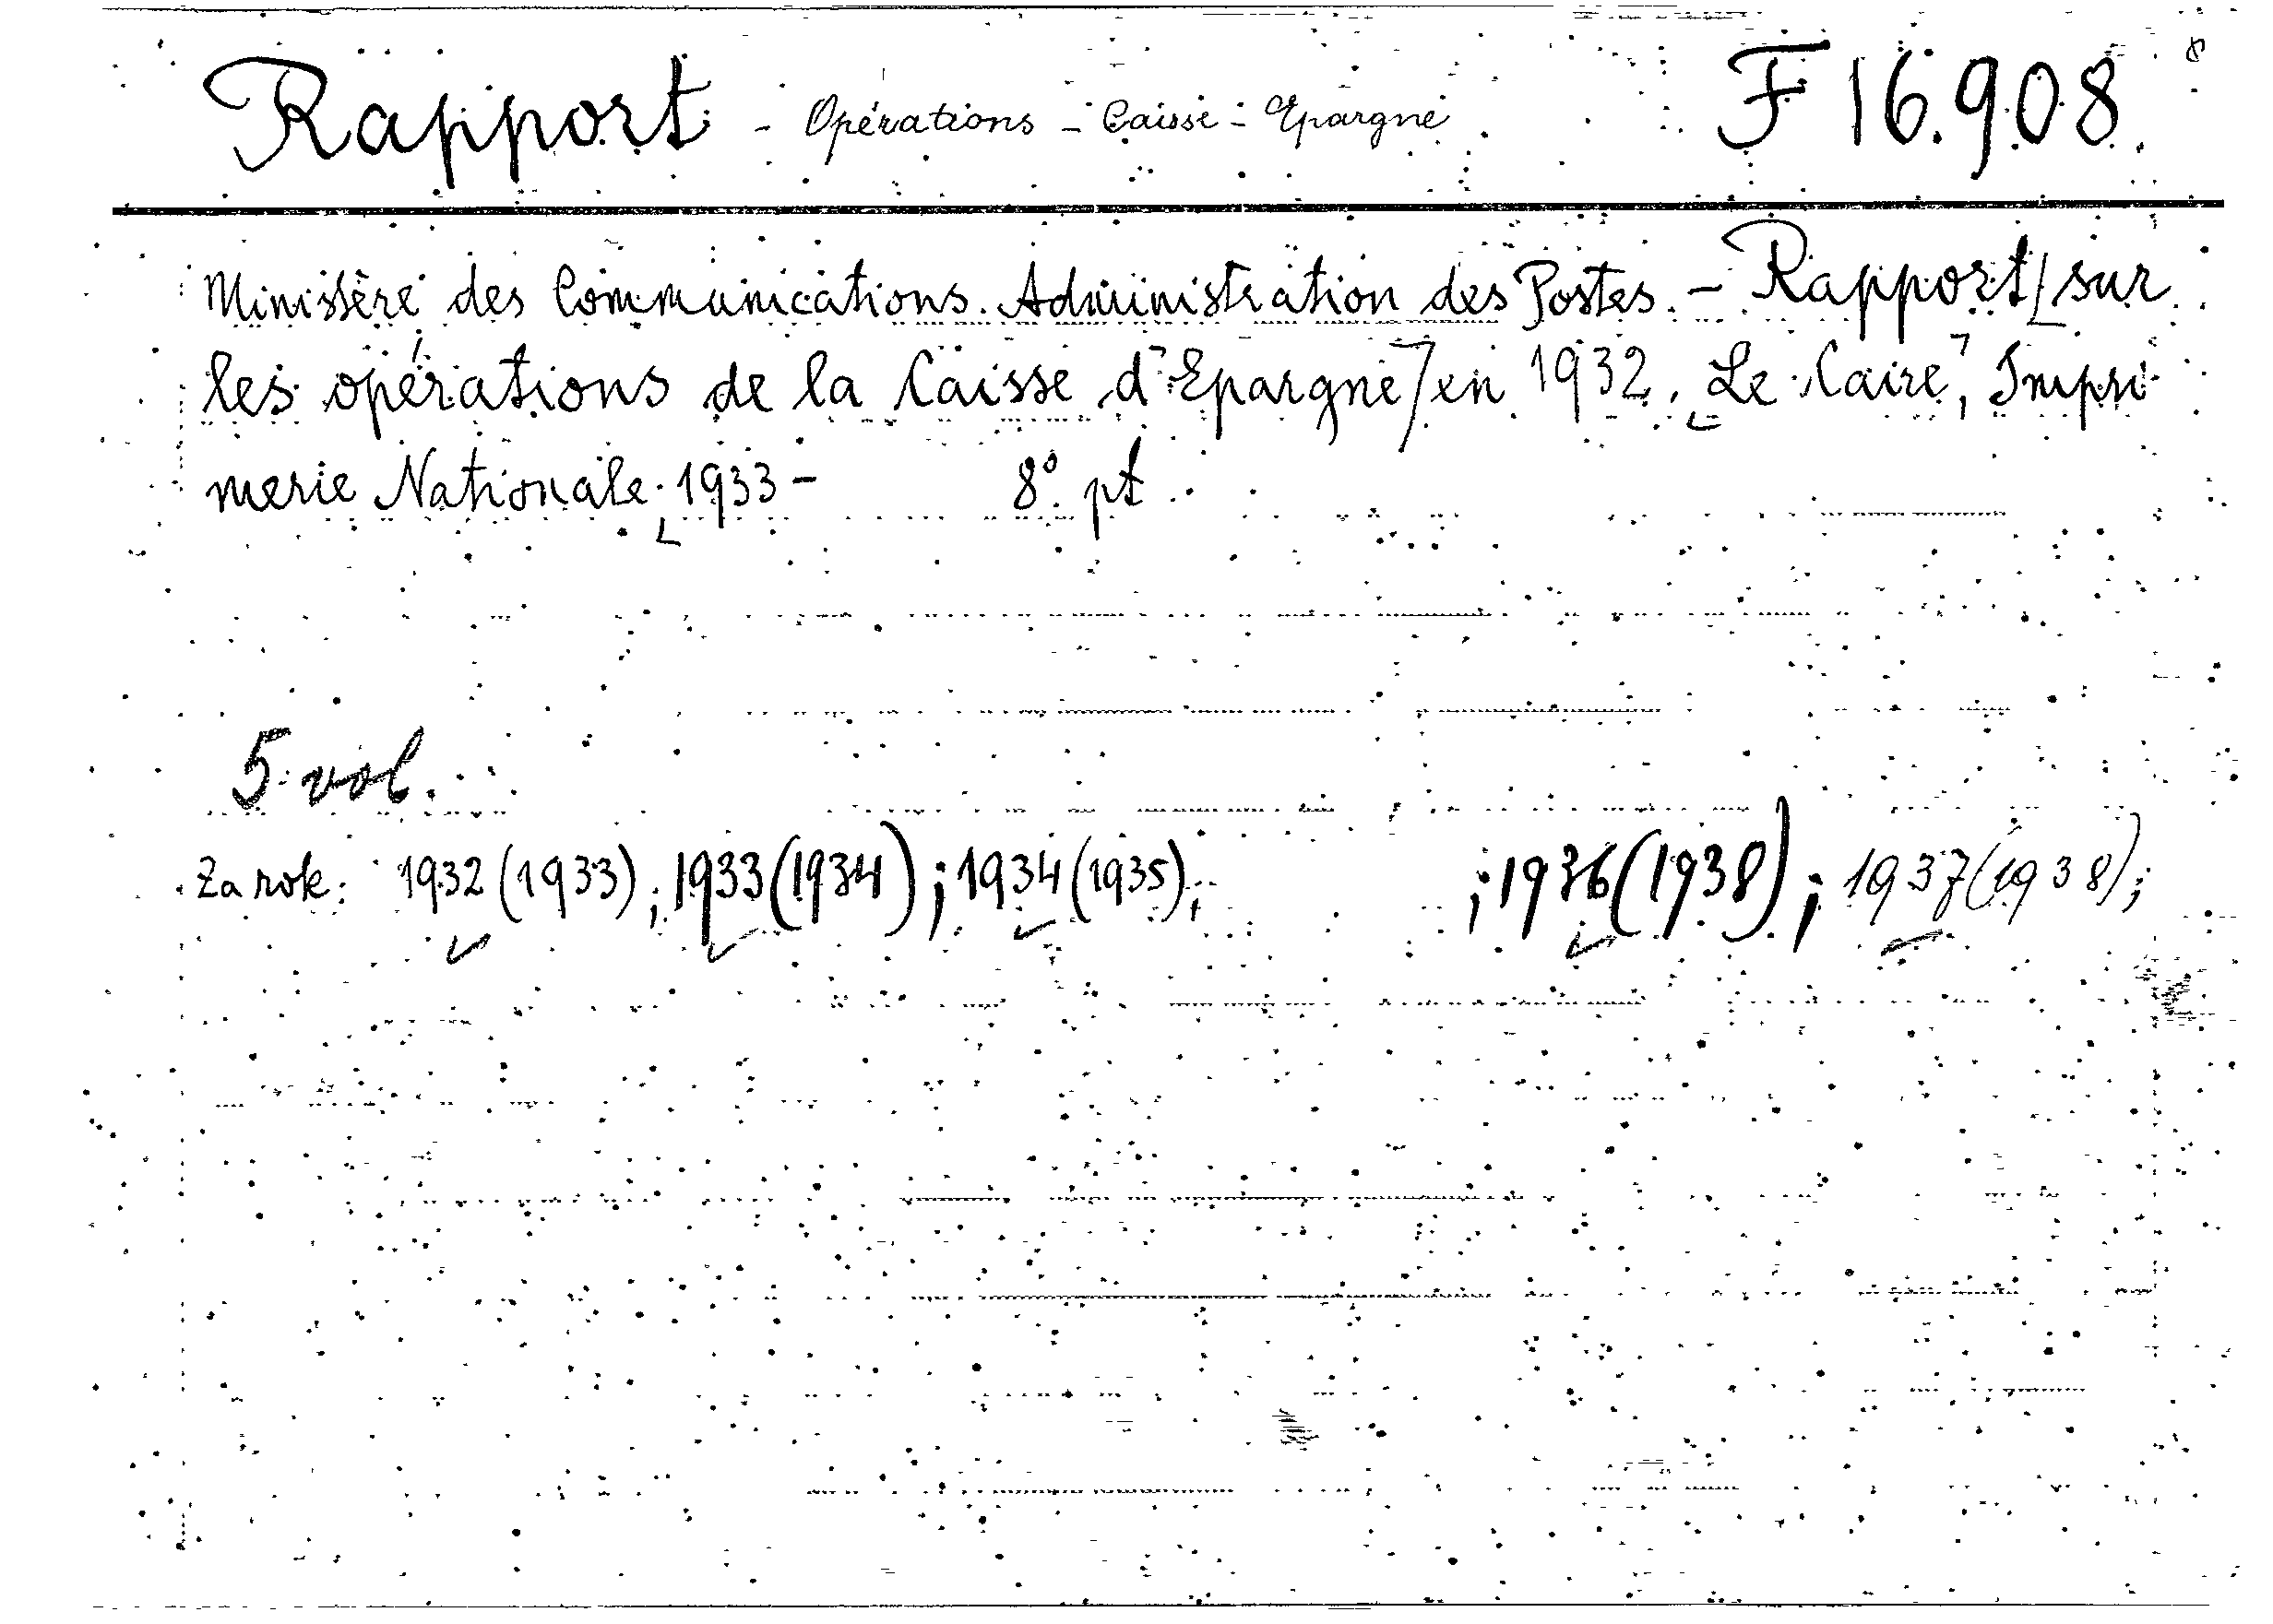 Rapport - Opérations - Caisse - Epargne F 16.908
Ministère des Communications. Administration des Postes. - Rapport sur
les opérations de la Caisse d'Epargne en 1932. Le Caire, Impri-
merie Nationale, 1933 - 8° pt
5 vol.
Za rok: 1932 (1933); 1933 (1934); 1934 (1935); ; 1936 (1938); 1937 (1938);